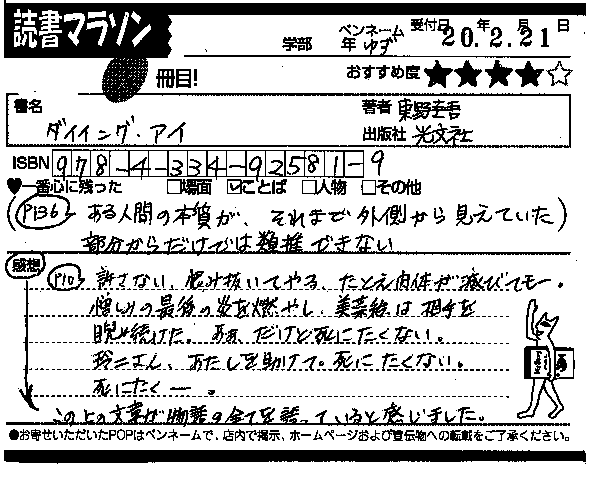 読書マラソン
学部 年 ペンネーム ゆず 受付日 20年2月21日
冊目! おすすめ度 ★★★★☆
書名 ダイイング・アイ
著者 東野圭吾
出版社 光文社
ISBN 978-4-334-92581-9
♥一番心に残った □場面 ☑ことば □人物 □その他
(P136 ある人間の本質が、それまで外側から見えていた)
部分からだけでは類推できない
感想
P10 許さない、恨み抜いてやる、たとえ肉体が滅びても―。
憎しみの最後の炎を燃やし、美菜絵は相手を
睨み続けた。ああ、だけど死にたくない。
玲二さん、あたしを助けて。死にたくない。
死にたく―。
この上の文章が物語の全てを語っていると感じました。
●お寄せいただいたPOPはペンネームで、店内で掲示、ホームページおよび宣伝物への転載をご了承ください。